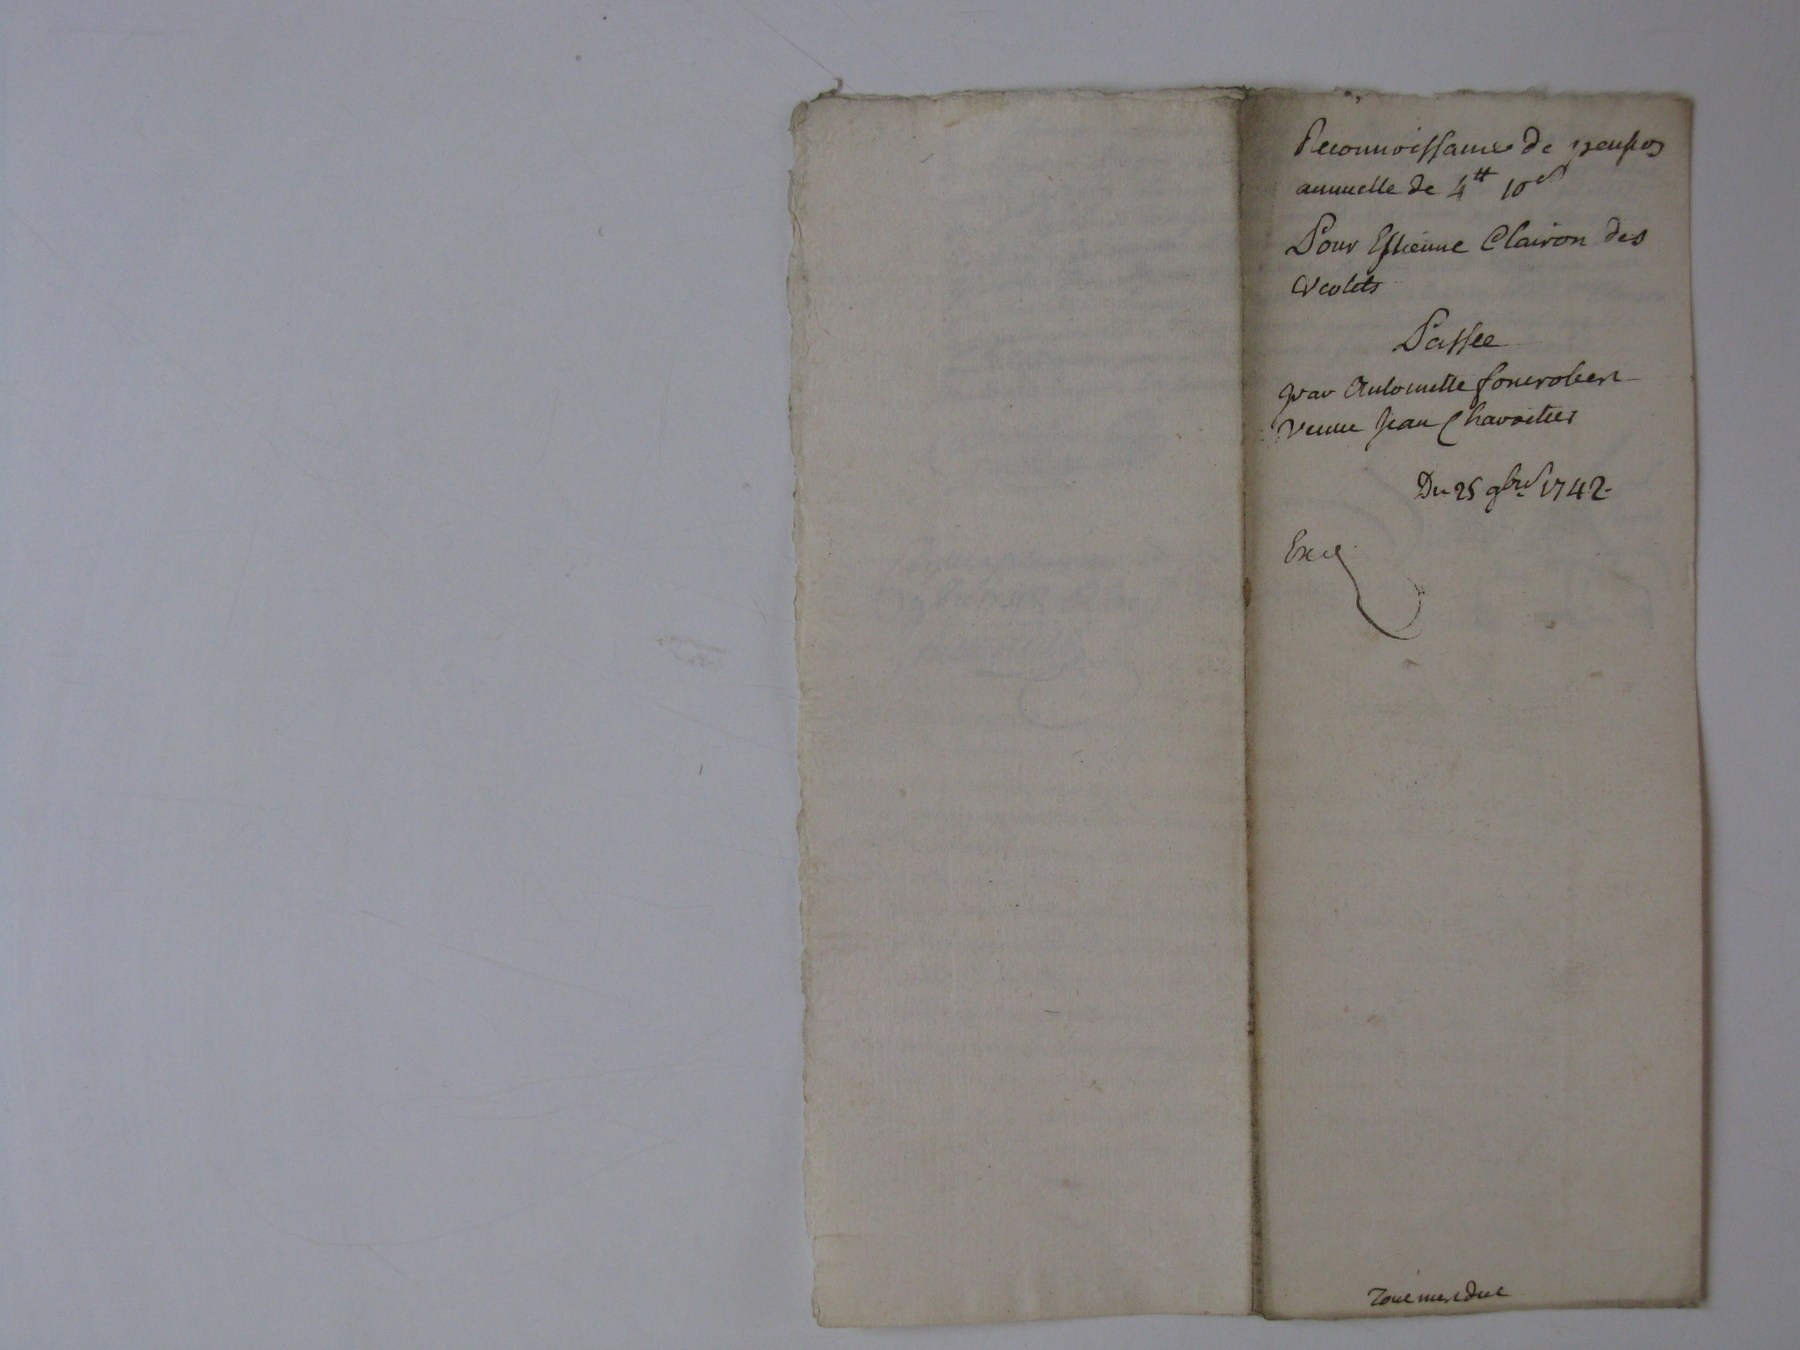 Reconnoissance de pension
annuelle de 4tt 10s
Pour Estienne Clairon des
Violets
Passée
par Antoinette fonrobert
veuve Jean Chavatier
Du 25 9bre 1742
Exé
Tout mest due